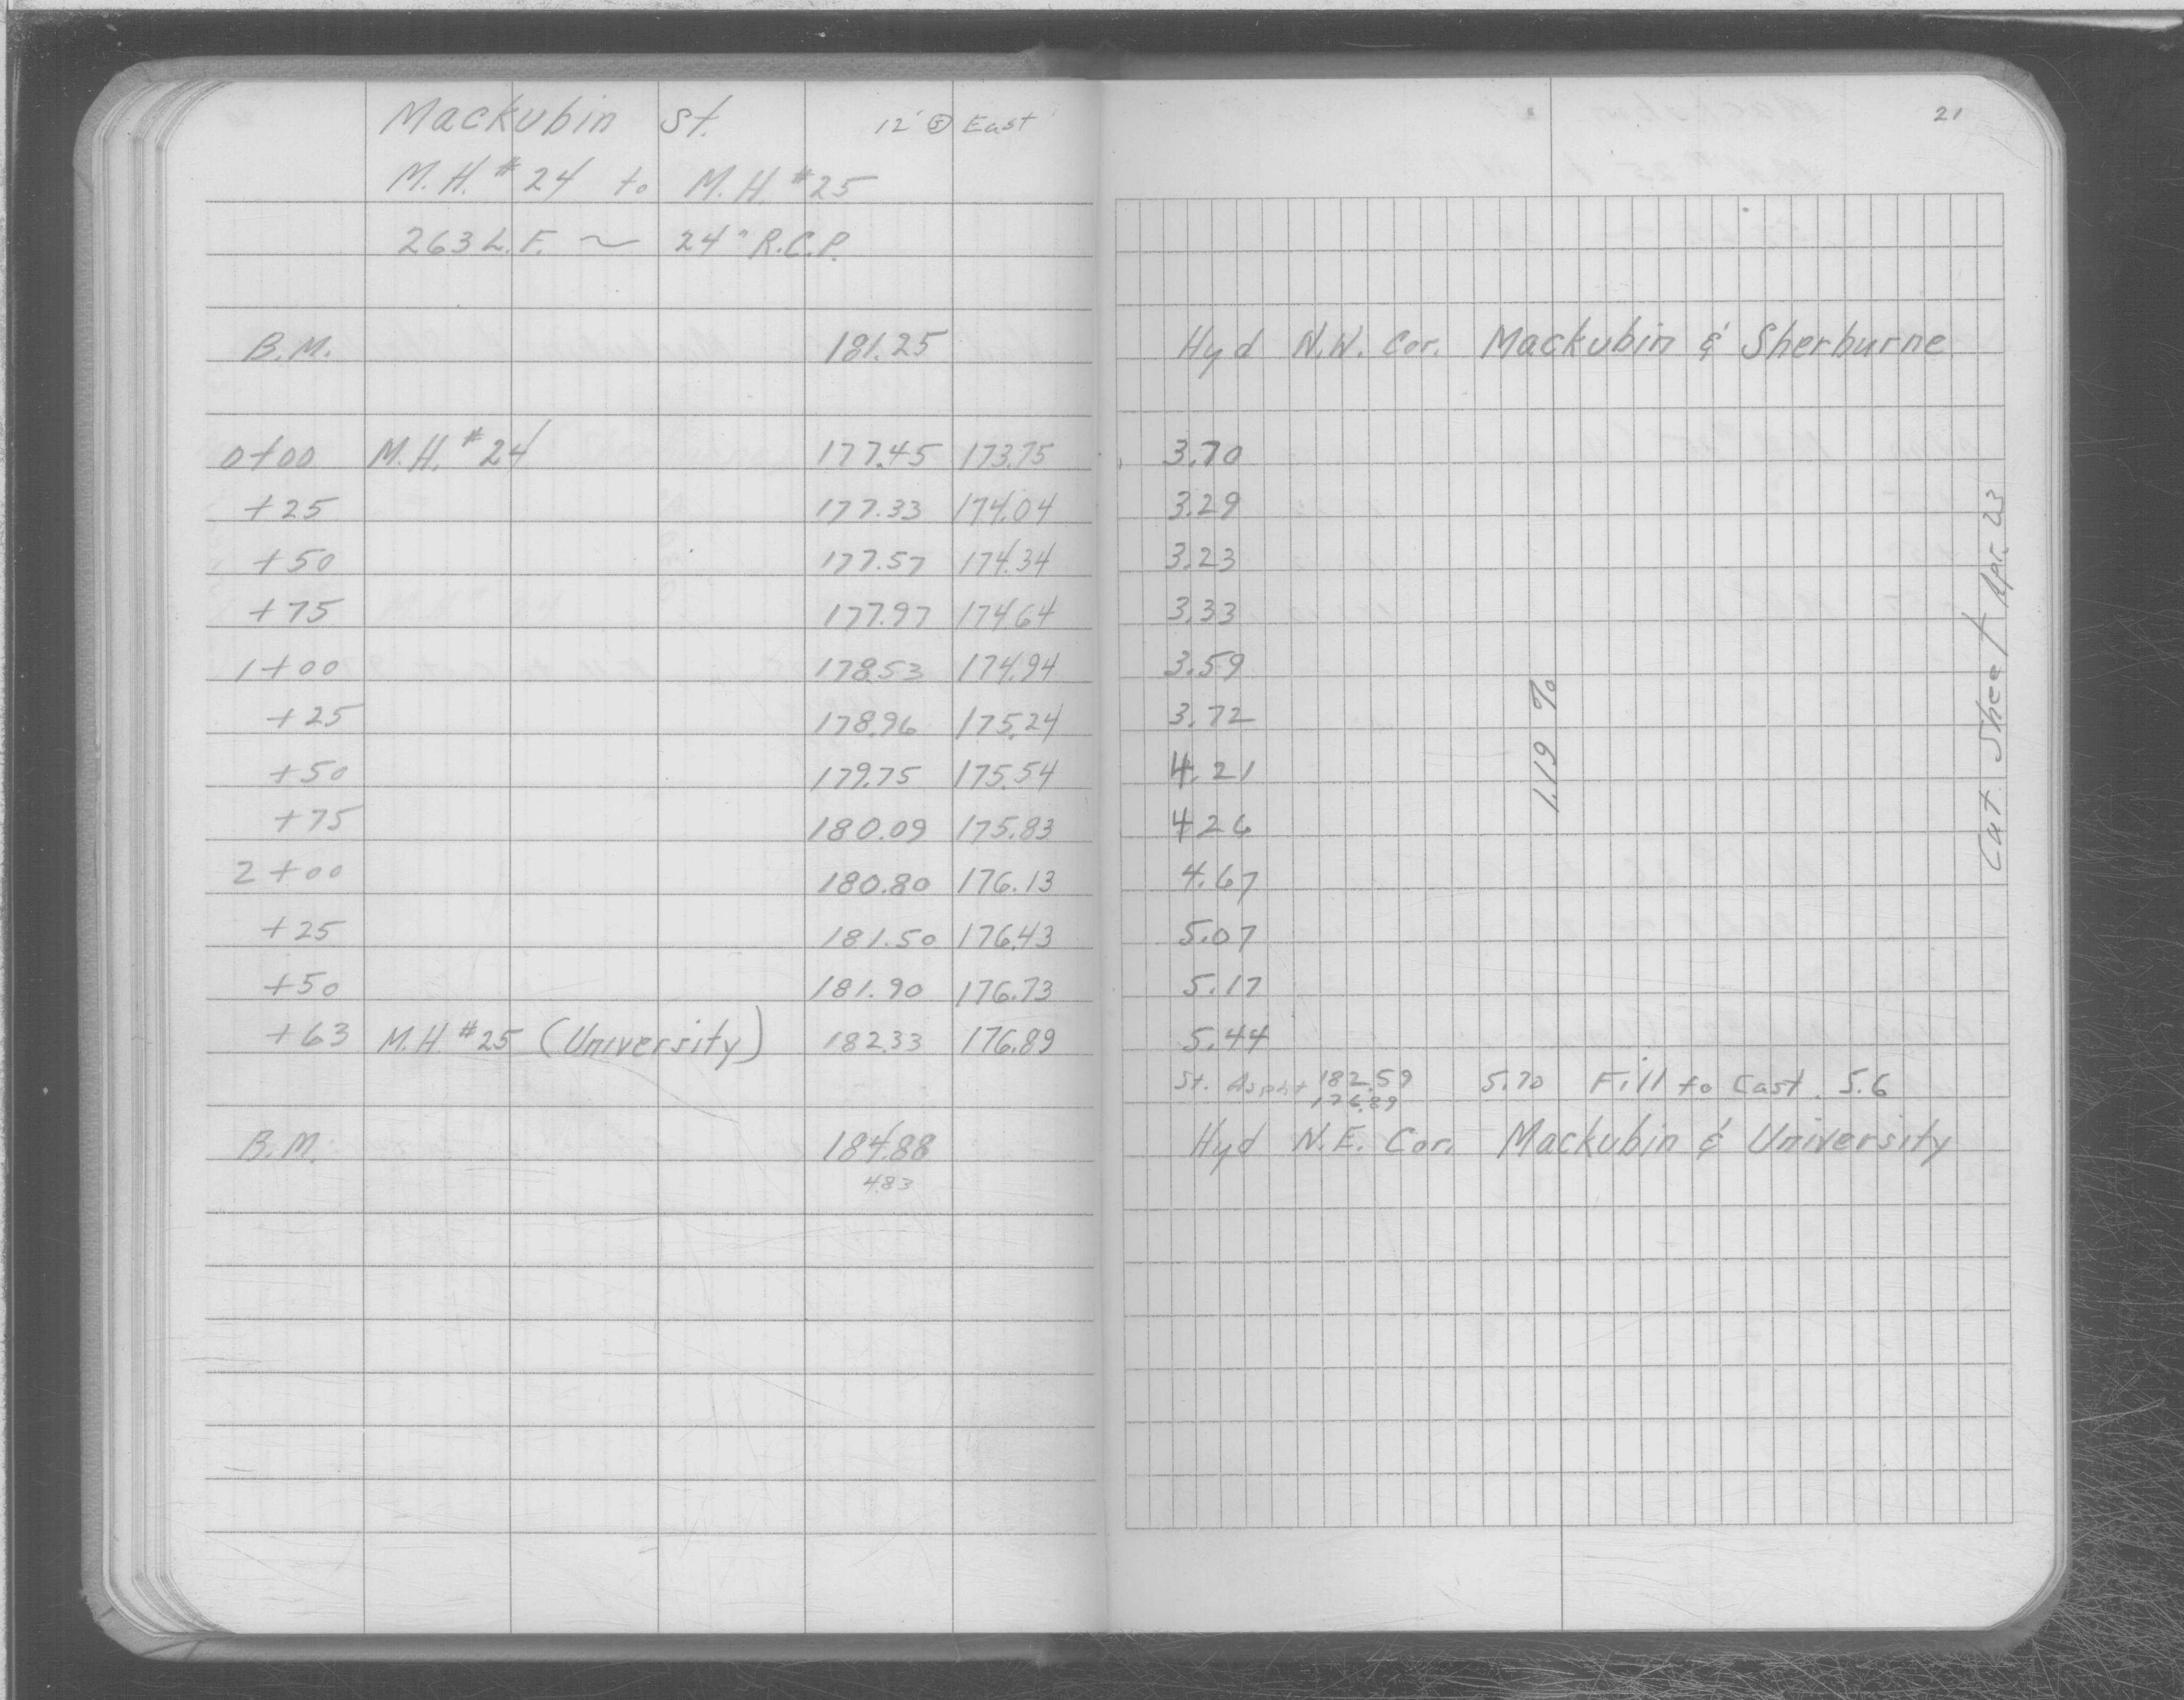 Mackubin St. 12' Ⓢ East
M.H. #24 to M.H. #25
263 L.F. ~ 24" R.C.P.
B.M. 181.25
0+00 M.H. #24 177.45 173.75
+25 177.33 174.04
+50 177.57 174.34
+75 177.97 174.64
1+00 178.53 174.94
+25 178.96 175.24
+50 179.75 175.54
+75 180.09 175.83
2+00 180.80 176.13
+25 181.50 176.43
+50 181.90 176.73
+63 M.H. #25 (University) 182.33 176.89
B.M. 184.88
4.83
21
Hyd N.W. Cor. Mackubin & Sherburne
3.70
3.29
3.23
3.33
3.59
3.72
4.21
4.26
4.67
5.07
5.17
5.44
St. 182.59 5.70 Fill to Cast. 5.6
176.89
Hyd N.E. Cor. Mackubin & University
1.19 %
Cut Sheet Apr. 23